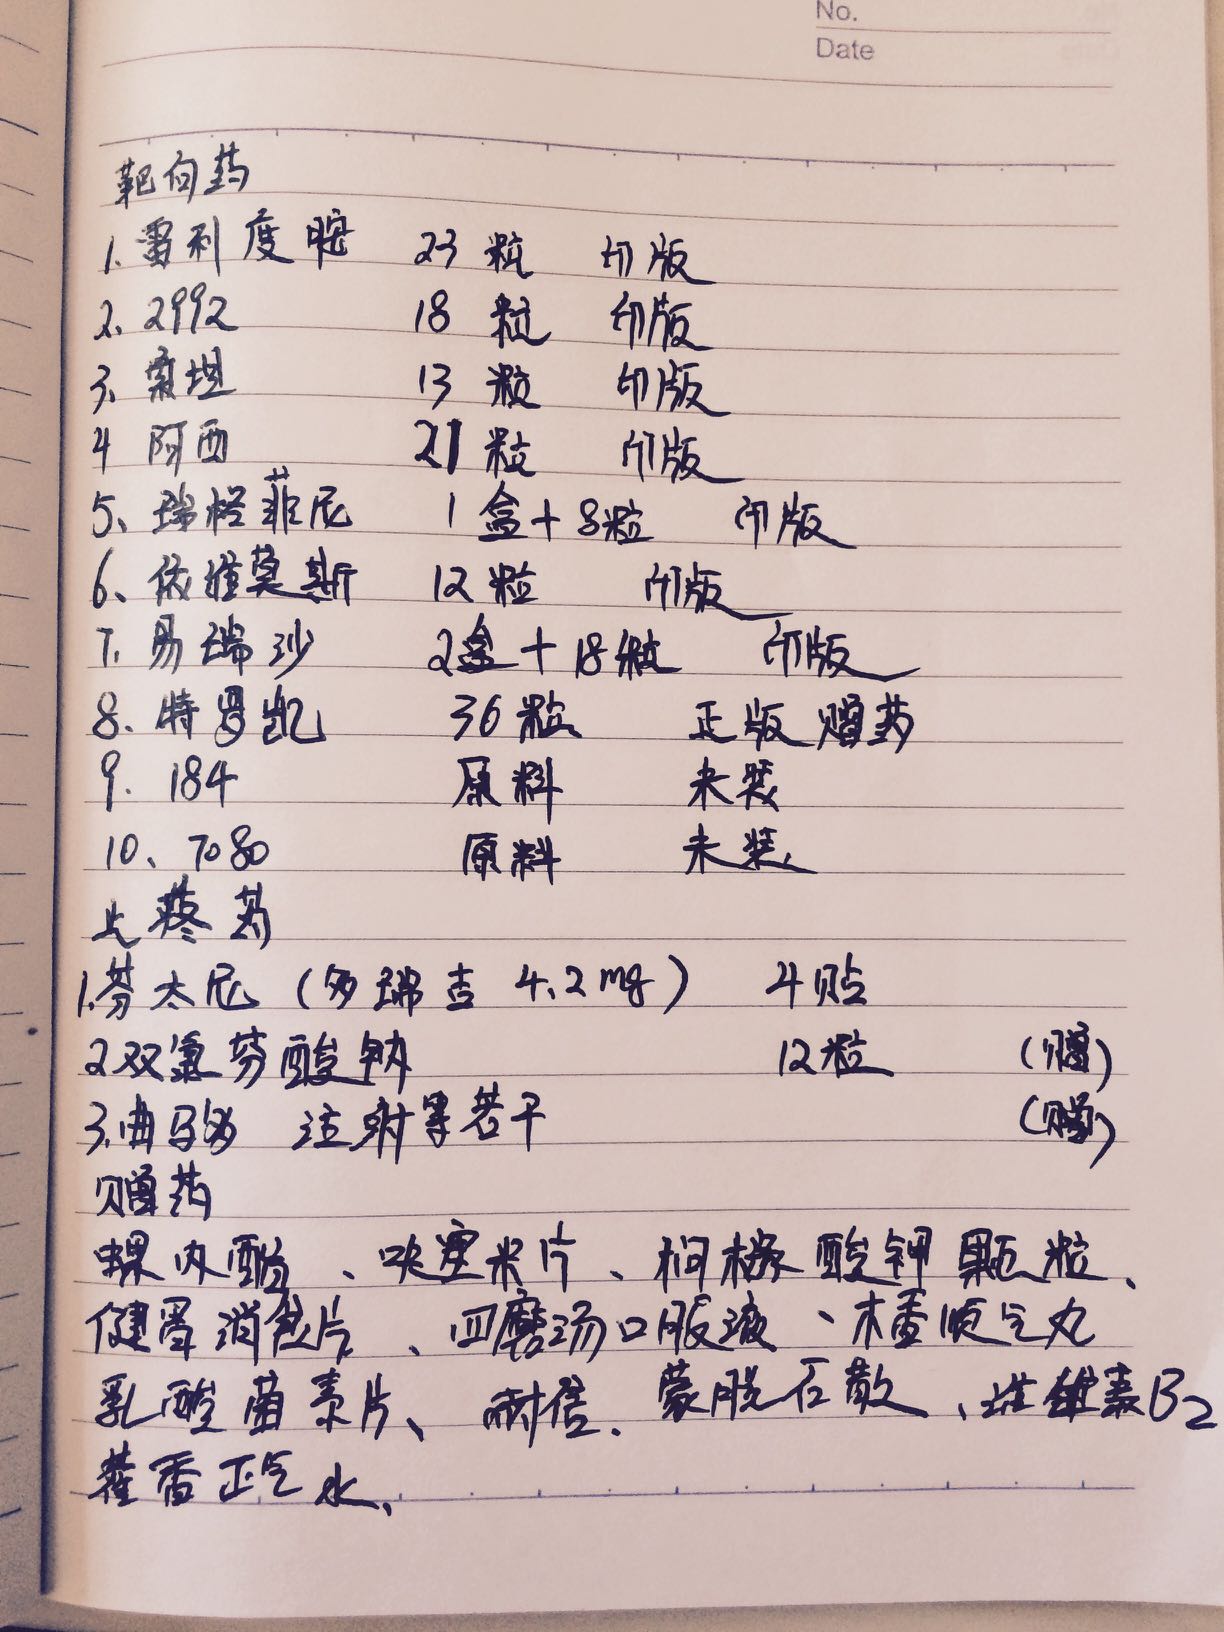 No.
Date
靶向药
1. 雷利度胺 23粒 印版
2、2992 18粒 印版
3、索坦 13粒 印版
4 阿西 21粒 印版
5、瑞格菲尼 1盒+8粒 印版
6、依维莫斯 12粒 印版
7. 易瑞沙 2盒+18粒 印版
8、特罗凯 36粒 正版赠药
9. 184 原料 未装
10、7080 原料 未装
止疼药
1.芬太尼(多瑞吉 4.2mg) 4贴
2双氯芬酸钠 12粒 (赠)
3.曲马多 注射等若干 (赠)
赠药
螺内酯、呋塞米片、枸橼酸钾颗粒、
健胃消食片、四磨汤口服液、木香顺气丸
乳酸菌素片、耐信、蒙脱石散、维素B2
藿香正气水、